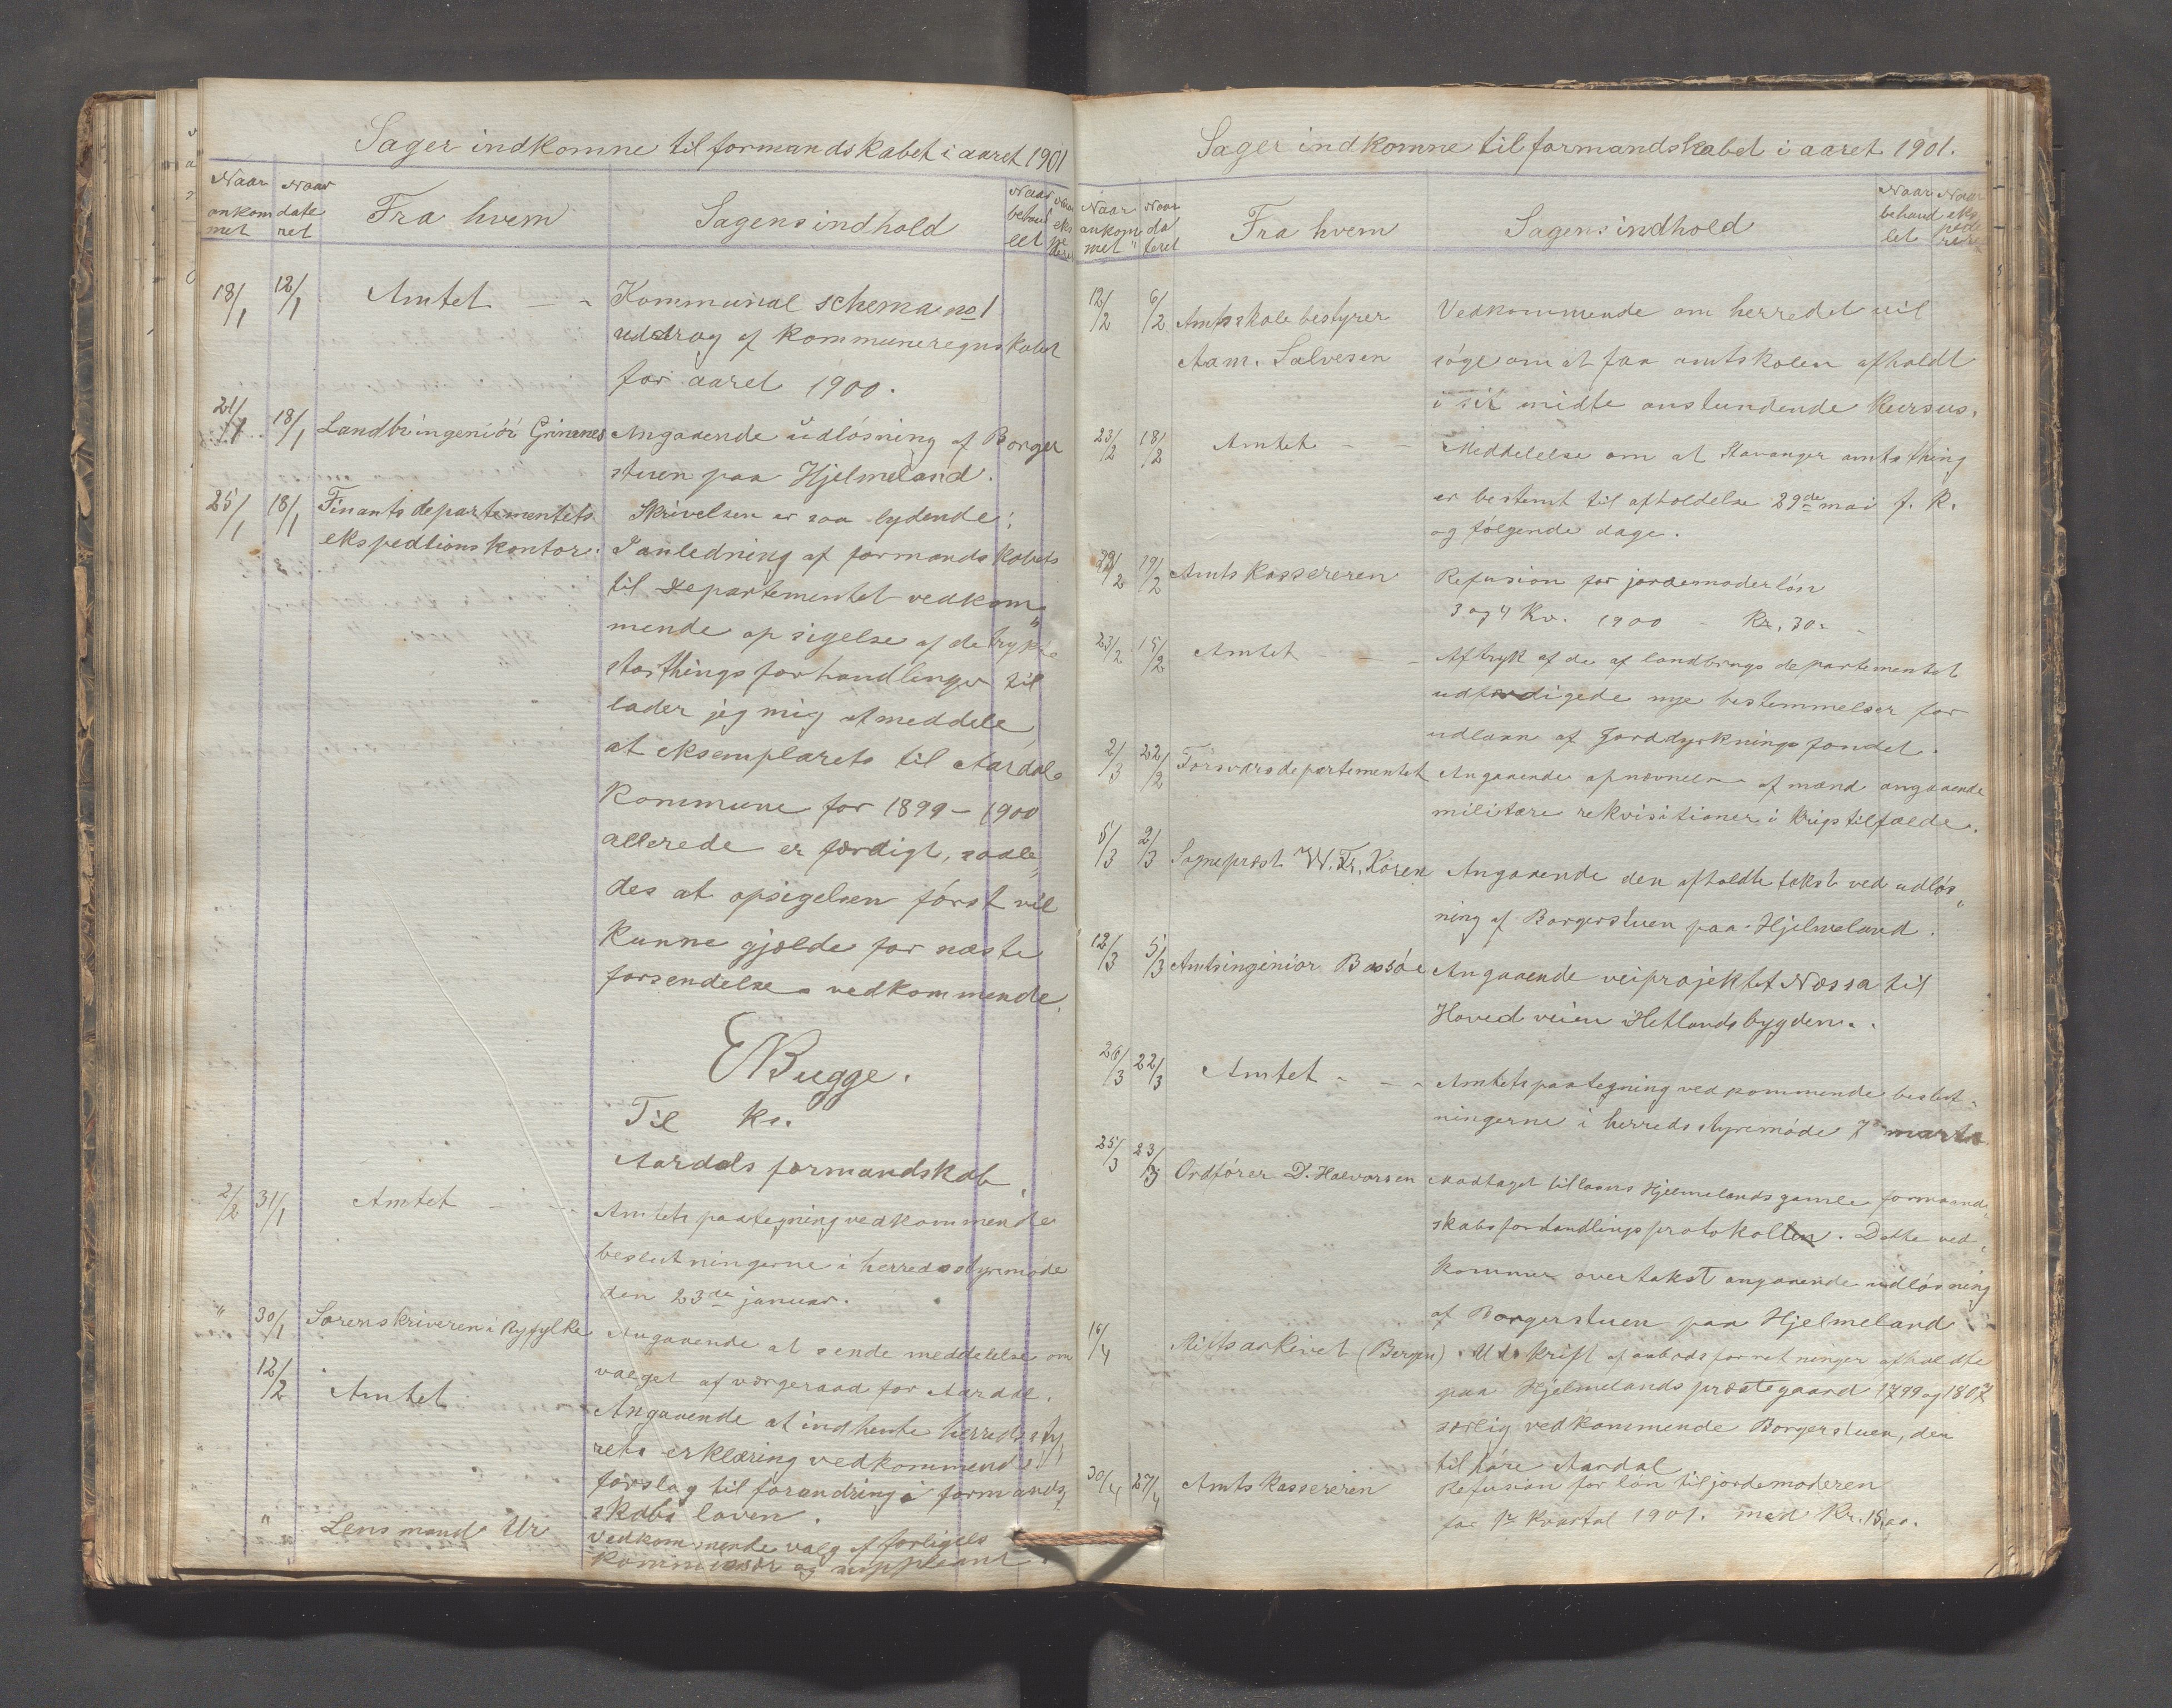 Sager indkomne til formandskabet i aaret 1901
Naar ankommet
Naar dateret
Fra hvem
Sagens indhold
Naar behandlet
18/1 12/1 Amtet — - Kommunal schema no 1
uddrag af kommuneregnskabet
for aaret 1900.
21/1 18/1 Landbringeniör Grimnes Angaaende udlösning af Borger
stuen paa Hjelmeland.
25/1 18/1 Finantsdepartementets Skrivelsen er saa lydende:
ekspedtionskontor. I anledning af formandskabets
til Departementet vedkom„
mende opsigelse af de trykte
storthingsforhandlinger til
lader jeg mig at meddele,
at eksemplarets til Aardal
Kommune for 1899 – 1900
allerede er færdigt, saale„
des at opsigelsen först vil
kunne gjælde for næste
forsendelse vedkommende.
E Bugge.
Til kr.
Aardals formandskab,
2/2 31/1 Amtet - - Amtets paategning vedkommende
beslutningerne i herredsstyremöde
den 23de januar.
" 30/1 Sorenskriveren i Ryfylke Angaaende at sende meddelelse om
valget af værgeraad for Aardal.
12/2 Amtet Angaaende at indhente herredssty„
rets erklæring vedkommende
forslag til forandring i formands„
skabsloven.
" Lensmand Ur Vedkommende valg af forligels
kommissær og suppleant.
Sager indkomne til formandskabet i aaret 1901.
Naar ankom„ met
Naar dateret
Fra hvem
Sagens indhold
Naar behandlet
Naar ekspederet
12/2 6/2 Amtsskolebestyrer Vedkommende om herredet vil
Aam. Salvesen söge om at faa amtskolen afholdt
i sit midte anstundende Kursus.
23/2 18/2 Amtet - - Meddelelse om at Stavanger amtsthing
er bestemt til afholdelse 29de mai f. k.
og fölgende dage.
22/2 19/2 Amtskassereren Refusion for jordemoderlön
3 og 4 Kv. 1900 - Kr. 30.-
23/2 15/2 Amtet - - - Aftryk af de af landbrugsdepartementet
udfærdigede nye bestemmelser for
udlaan af Jorddyrkningsfondet.
2/3 22/2 Forsvarsdepartementet Angaaende opnævnelse af mænd angaaende
militære rekvisitioner i krigstilfælde.
5/3 2/3 Sogneprest W. Fr. Koren Angaaende den afholdte takst ved udlös„
ning af Borgerstuen paa Hjelmeland.
12/3 5/3 Amtsingeniör Bassöe Angaaende veiprojektet Nessa til
Hovedveien i Hetlandsbygden.
26/3 22/3 Amtet - - - Amtets paategning vedkommende beslut-
ningerne i herredsstyremöde 7 marts
25/3 23/3 Ordförer D. Halvorsen Modtaget tillaans Hjelmelands gamle formand„
skabsforhandlingsprotokollen. Dette ved„
kommer overtakst angaaende udlösning
af Borgerstuen paa Hjelmeland.
16/4 Stiftsarkivet (Bergen). Udskrift af aabodsforretninger afholdte
paa Hjelmelands præstegaard 1799 og 1807
særlig vedkommende Borgerstuen, den
tilhöre Aardal
30/4 27/4 Amtskassereren Refusion for lön til jordemoderen
for 1ste kvartal 1901. med Kr. 15,00.